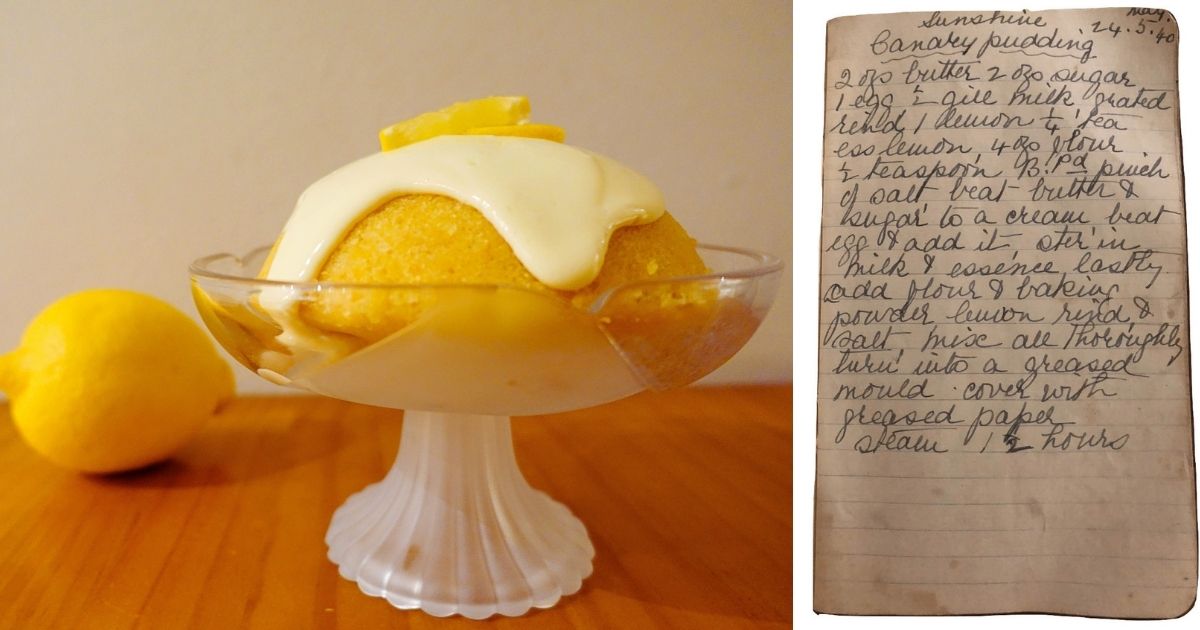 Sunshine May.
Canary pudding 24.5.40
2 ozs butter 2 ozs sugar
1 egg ½ gill milk grated
rind 1 lemon ¼ tea
ess lemon 4 ozs flour
½ teaspoon B. Pd pinch
of salt beat butter &
sugar to a cream beat
egg & add it ster in
milk & essence lastly
add flour & baking
powder lemon rind &
salt mix all thoroughly
turn into a greased
mould. cover with
greased paper
steam 1½ hours